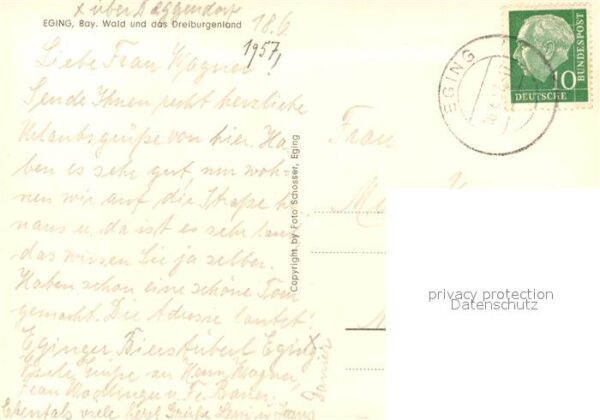 x über Deggendorf
EGING, Bay. Wald und das Dreiburgenland
18.6.
1957,
Liebe Frau Wagner!
Sende Ihnen recht herzliche
Urlaubsgrüße von hier. Ha-
ben es sehr gut, nur woh-
nen wir auf die Straße hi-
naus u. da ist es sehr laut
das wissen Sie ja selber.
Haben schon eine schöne Tour
gemacht. Die Adresse lautet:
Eginger Bierstüberl Eging x
Grüße an Herrn Wagner,
Frau u. Fr. Bauer.
Ebenfals viele herzl. Grüße u. Hans
Copyright by Foto Schosser, Eging
Frau
EGING
DEUTSCHE
BUNDESPOST
10
privacy protection
Datenschutz